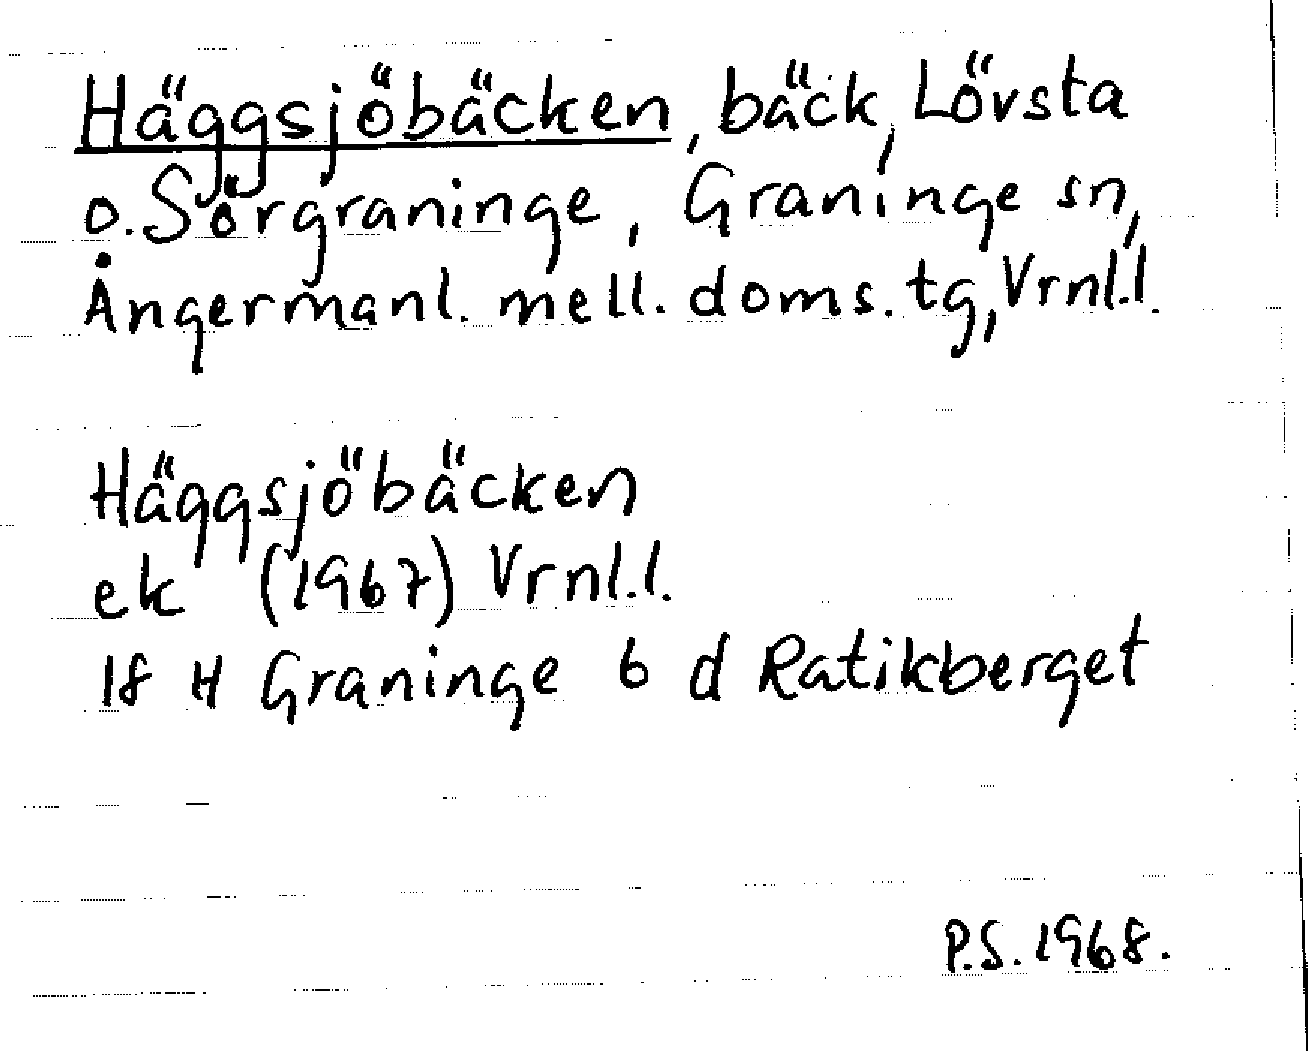 Häggsjöbäcken, bäck, Lövsta
o. Sörgraninge, Graninge sn,
Ångermanl. mell. doms. tg, Vrnl.l.
Häggsjöbäcken
ek (1967) Vrnl.l.
18 H Graninge 6 d Ratikberget
P.S. 1968.